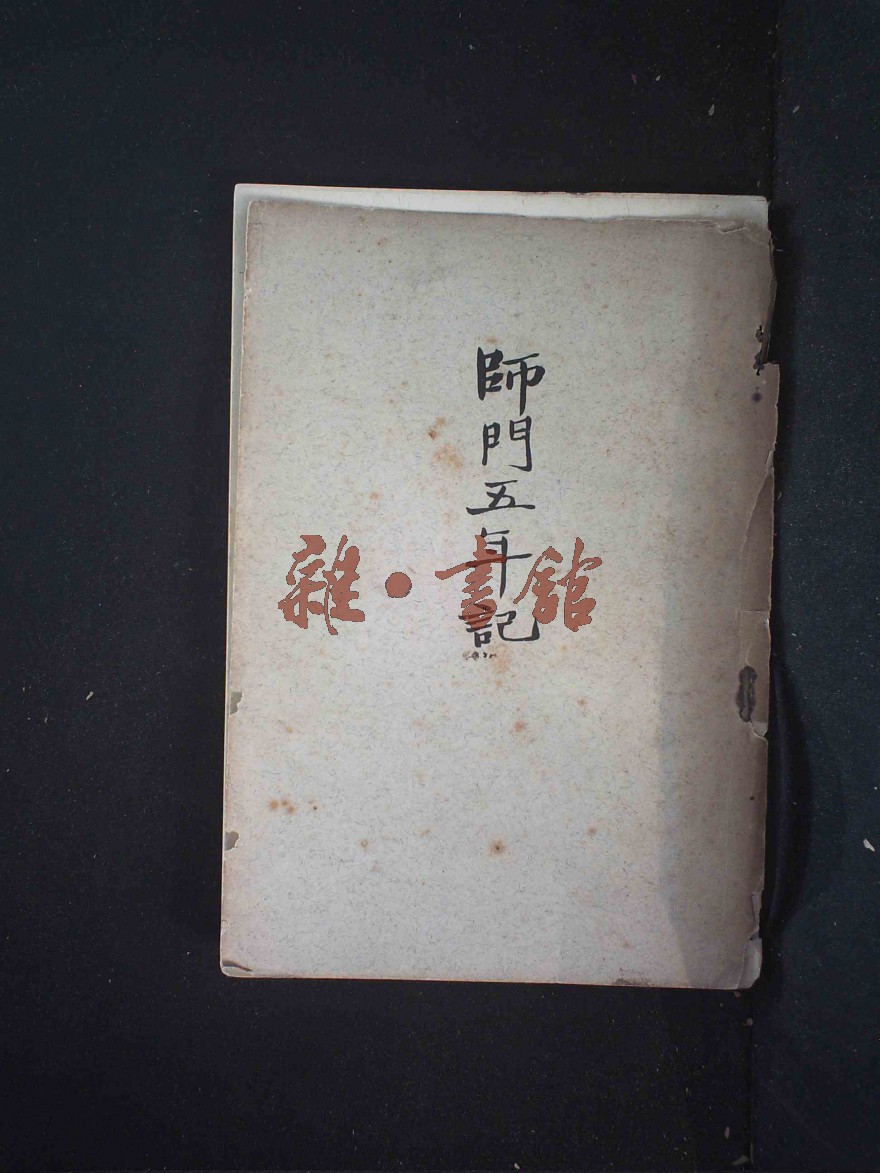 師門五年記
雜·書館